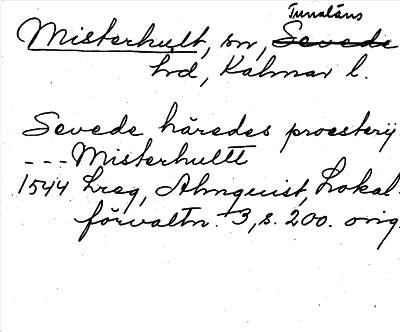 Tunaläns
Misterhult, sn, Sevede
hd, Kalmar l.
Sevede häredes proesterij
--- Misterhultt
1544 Lreg, Almquist, Lokal-
förvaltn. 3, s. 200. orig.